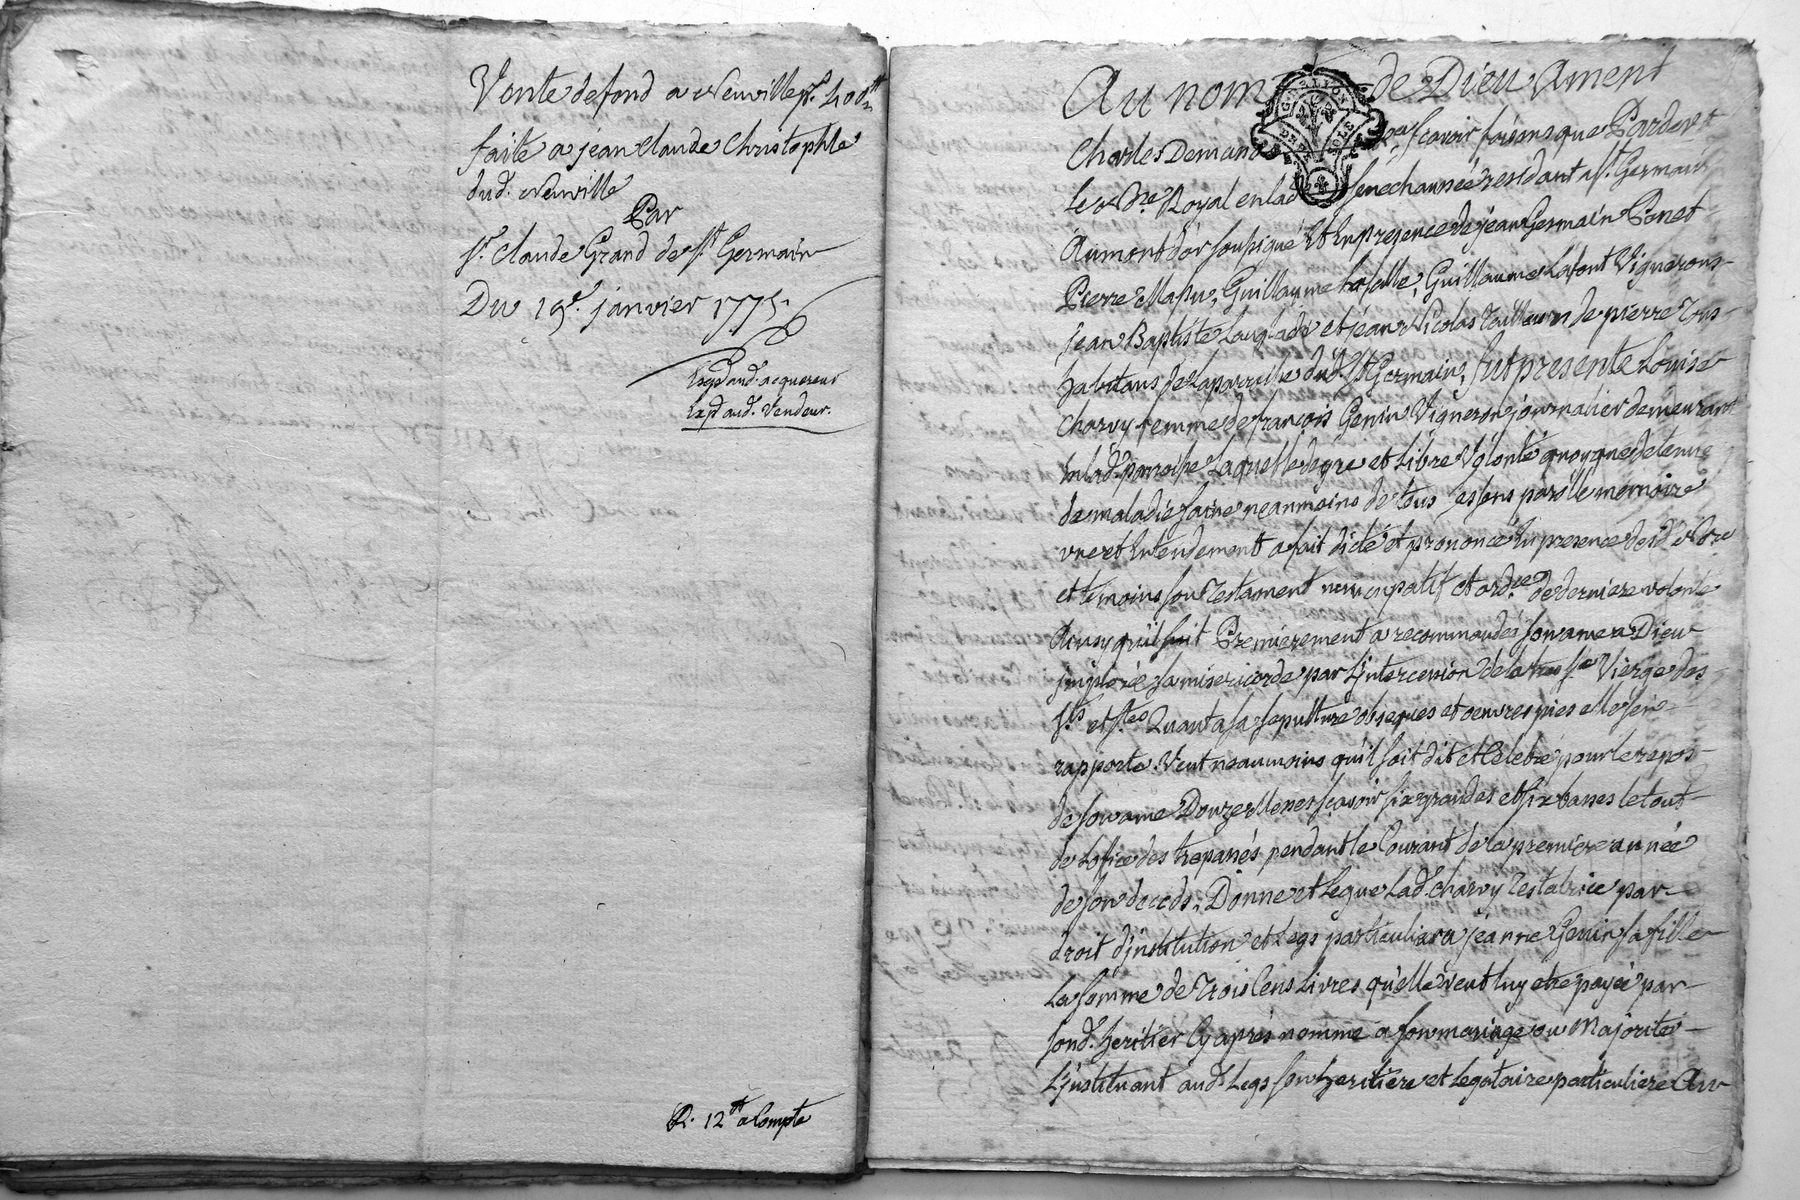 Vente de fond a Neuville pr. 400tt
faite a jean Claude Christophle
dud. Neuville
Par
Sr. Claude Grand de St. Germain
Du 19e. janvier 1775.
Exped aud. acquereur
Exp aud. Vendeur.
R. 12tt a Compte
Au nom de Dieu Ament
GEN LYON
DEUX SOLS
Charles Demano scavoir faisons que Pardevt
le Nre Royal en lad senechaussée residant a St. Germain
Aumont d'or soussigné Et En presence de jean Germain Ponet
Pierre Mapu, Guillaume Lasalle, Guillaume Lafont Vignerons
jean Baptiste Langlade et jean Nicolas Tailleurs de pierre Tous
habitans de La parroisse dud. St Germain, fut presente Louise
Charvy femme de françois Genin Vigneron journalier demeurant
En lad. parroisse Laquelle de gré et Libre Volonté quoyque detenue
de maladie saine neanmoins de tous ses sens parolle memoire
vue et Entendement a fait dicté et prononcé En presence dud Nre
et temoins son Testament nuncupatif et ordce de derniere volonté
Ainsy qu'il suit Premierement a recommandé son ame a Dieu
jmploré sa misericorde par L'jntercession de la tres Ste Vierge des
Sts et Stes Quant a sa sepulture obseques et oeuvres pies elle s'en
rapporte. Veut neanmoins qu'il soit dit et Celebré pour le repos
de son ame Douze Messes sçavoir six grandes et six basses le tout
de Lofice des trepassés pendant le Courant de la premiere année
de son deceds, Donne et Legue Lad. Charvy Testatrice par
droit d'jnstitution et Legs particulier a jeanne Genin sa fille
La somme de Trois Cens Livres qu'elle veut luy etre payée par
sond. heritier Cy après nommé a son mariage ou Majorité
L'jnstituant aud. Legs son heritiere et Legataire particuliere Au